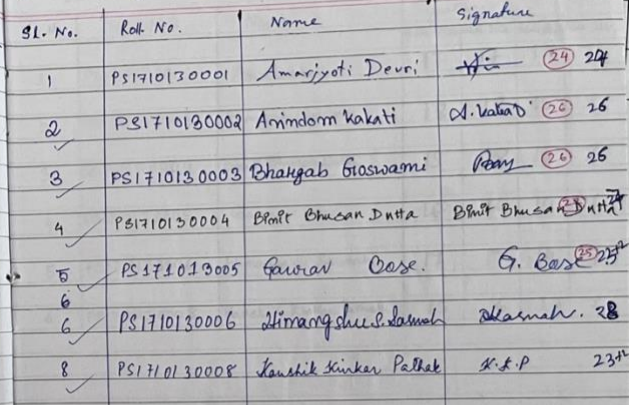 Sl. No. Roll No. Name Signature
1 PS1710130001 Amarjyoti Deuri 24 24
2 PS1710130002 Arindom Kakati A. Kakati 26 26
3 PS1710130003 Bhargab Goswami 26 26
4 PS1710130004 Bimit Bhusan Dutta Bimit Bhusan Dutta
5 PS171013005 Gaurav Bose. G. Bose 25
6
6 PS1710130006 Himangshu S. Sarmah 28
8 PS1710130008 Kaushik Kinkar Pathak K.K.P 23+2